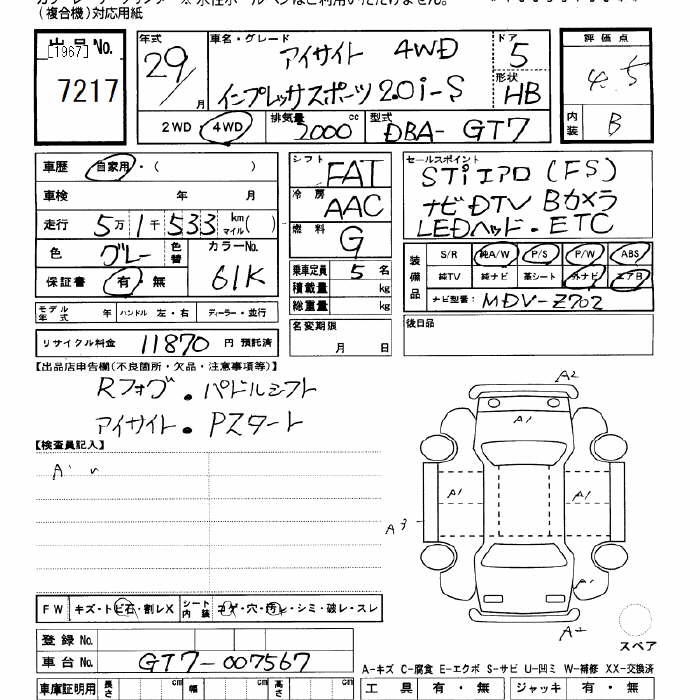 (複合機)対応用紙
出品No.
[1967]
7217
年式 29/ 月
車名・グレード アイサイト 4WD
インプレッサスポーツ 2.0i-S
ドア 5
形状 HB
2WD 4WD
排気量 2000 cc
型式 DBA- GT7
評価点 4.5
内装 B
車歴 自家用・( )
車検 年 月
走行 5万1千533 km マイル( )
色 グレー 色替
カラーNo. 61K
保証書 有・無
シフト FAT
冷房 AAC
燃料 G
乗車定員 5 名
積載量 kg
総重量 kg
セールスポイント
STiエアロ (FS)
ナビDTV Bカメラ
LEDヘッド・ETC
装備品 S/R 純A/W P/S P/W ABS
純TV 純ナビ 革シート 外ナビ エアB
ナビ型番: MDV-Z702
モデル年式 年 ハンドル 左・右 ディーラー・並行
名変期限 月 日
後日品
リサイクル料金 11870 円 預託済
【出品店申告欄(不良箇所・欠品・注意事項等)】
Rフォグ・パドルシフト
アイサイト・Pスタート
【検査員記入】
A2
A1
A1
A1
A3
A1
A2
FW キズ・トビ石・割レX シート内装 コゲ・穴・汚レ・シミ・破レ・スレ
スペア
登録No.
車台No. GT7-007567
A-キズ C-腐食 E-エクボ S-サビ U-凹ミ W-補修 XX-交換済
車庫証明用 長さ cm 幅 cm 高さ cm
工具 有・無 ジャッキ 有・無